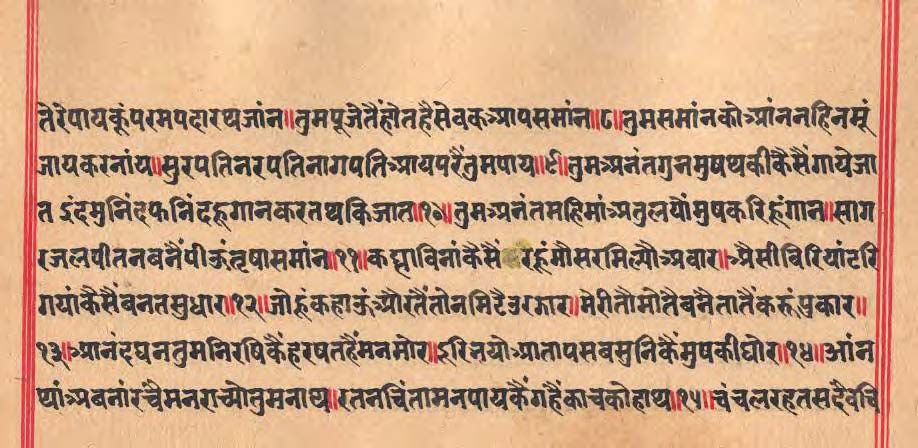 तेरे पाय कूं परम पदारथ जांन॥ तुम पूजे तैं होत है सेवक आप समांन॥८॥ तुम समांन को आंन नहि नमूं
जाय कर नांय॥ सुरपति नरपति नागपति आय परैं तुम पाय॥९॥ तुम अनंत गुन मुष थकी कैसैं गाये जा
त इंद मुनिंद फनिंद हू गान करत थकि जात॥१०॥ तुम अनंत महिमां अतुल यौं मुष करि हूं गान॥ साग
र जल पीत न बनैं पीऊं तृषा समांन॥११॥ कह्या विनां कैसैं रहूं मौसर मिल्यौ अवार॥ ऐसी विरियां टरि
गयां कैसैं बनत सुधार॥१२॥ जो हूं कहाऊं और तैं तो न मिटै उरझार॥ मेरी तौ मो तै बनै ता तैं करूं पुकार॥
१३॥ आनंदघन तुम निरषि कैं हरषत है मन मोर॥ दूरि नयो आताप सब सुनि कैं मुष की घोर॥१४॥ आंन
थां अब नां रंचै मन राच्यो तुम नाथ॥ रतन चिंतामन पाय कैं गहैं काच को हाथ॥१५॥ चंचल रहत सदैव चि